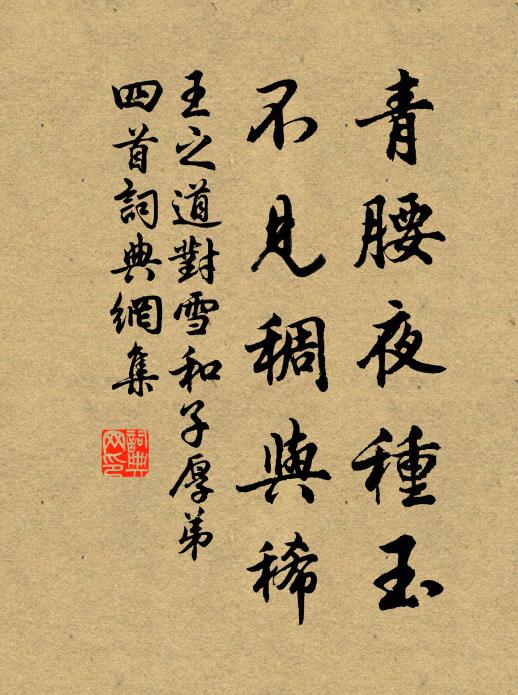 青腰夜種玉
不見稠與稀
王之道對雪和子厚弟
四首詞典網集
詞典
网印